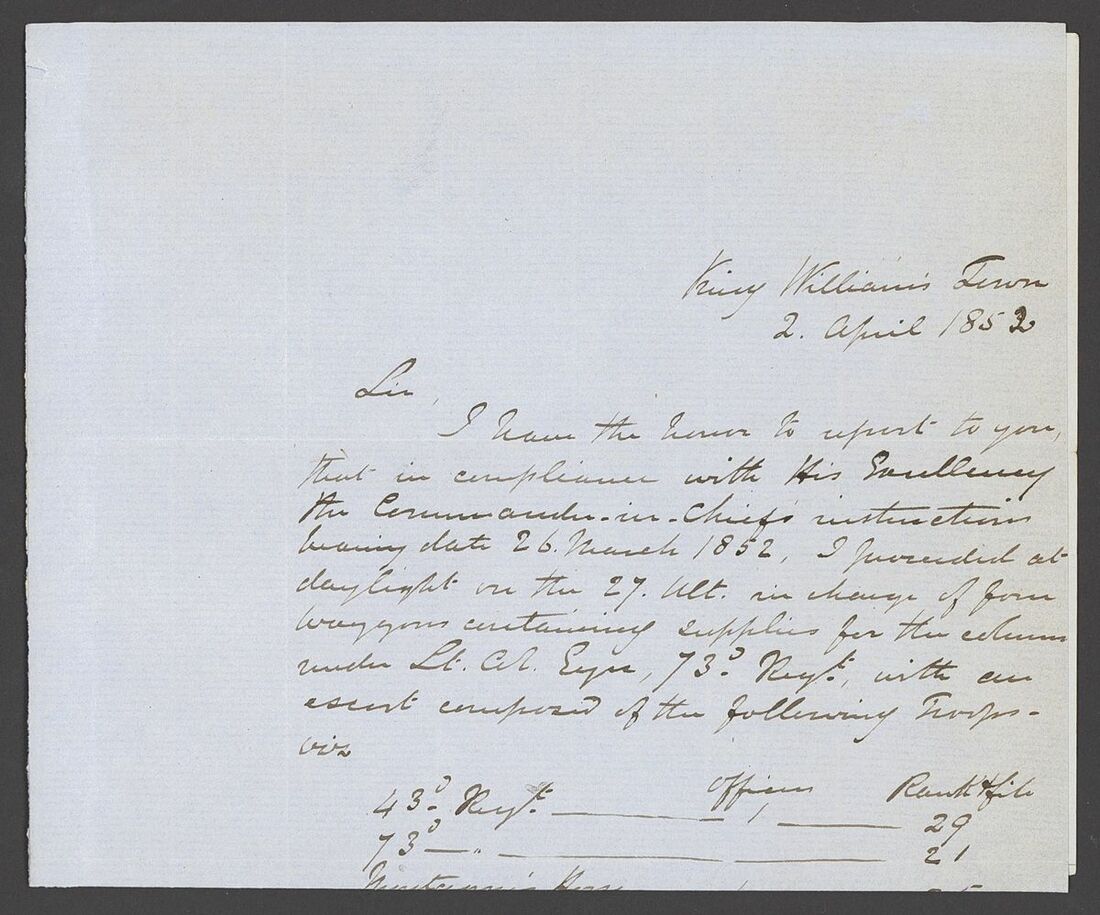 King William's Town
2. April 1852
Sir,
I have the honor to report to you,
that in compliance with His Excellency
the Commander-in-Chief's instructions
bearing date 26. March 1852, I proceeded at
daylight on the 27. Ult. in charge of four
waggons containing supplies for the column
under Lt. Col. Eyre, 73d. Regt., with an
escort composed of the following Troops-
viz
Officers Rank & file
43d. Regt. 1 29
73d — " 21